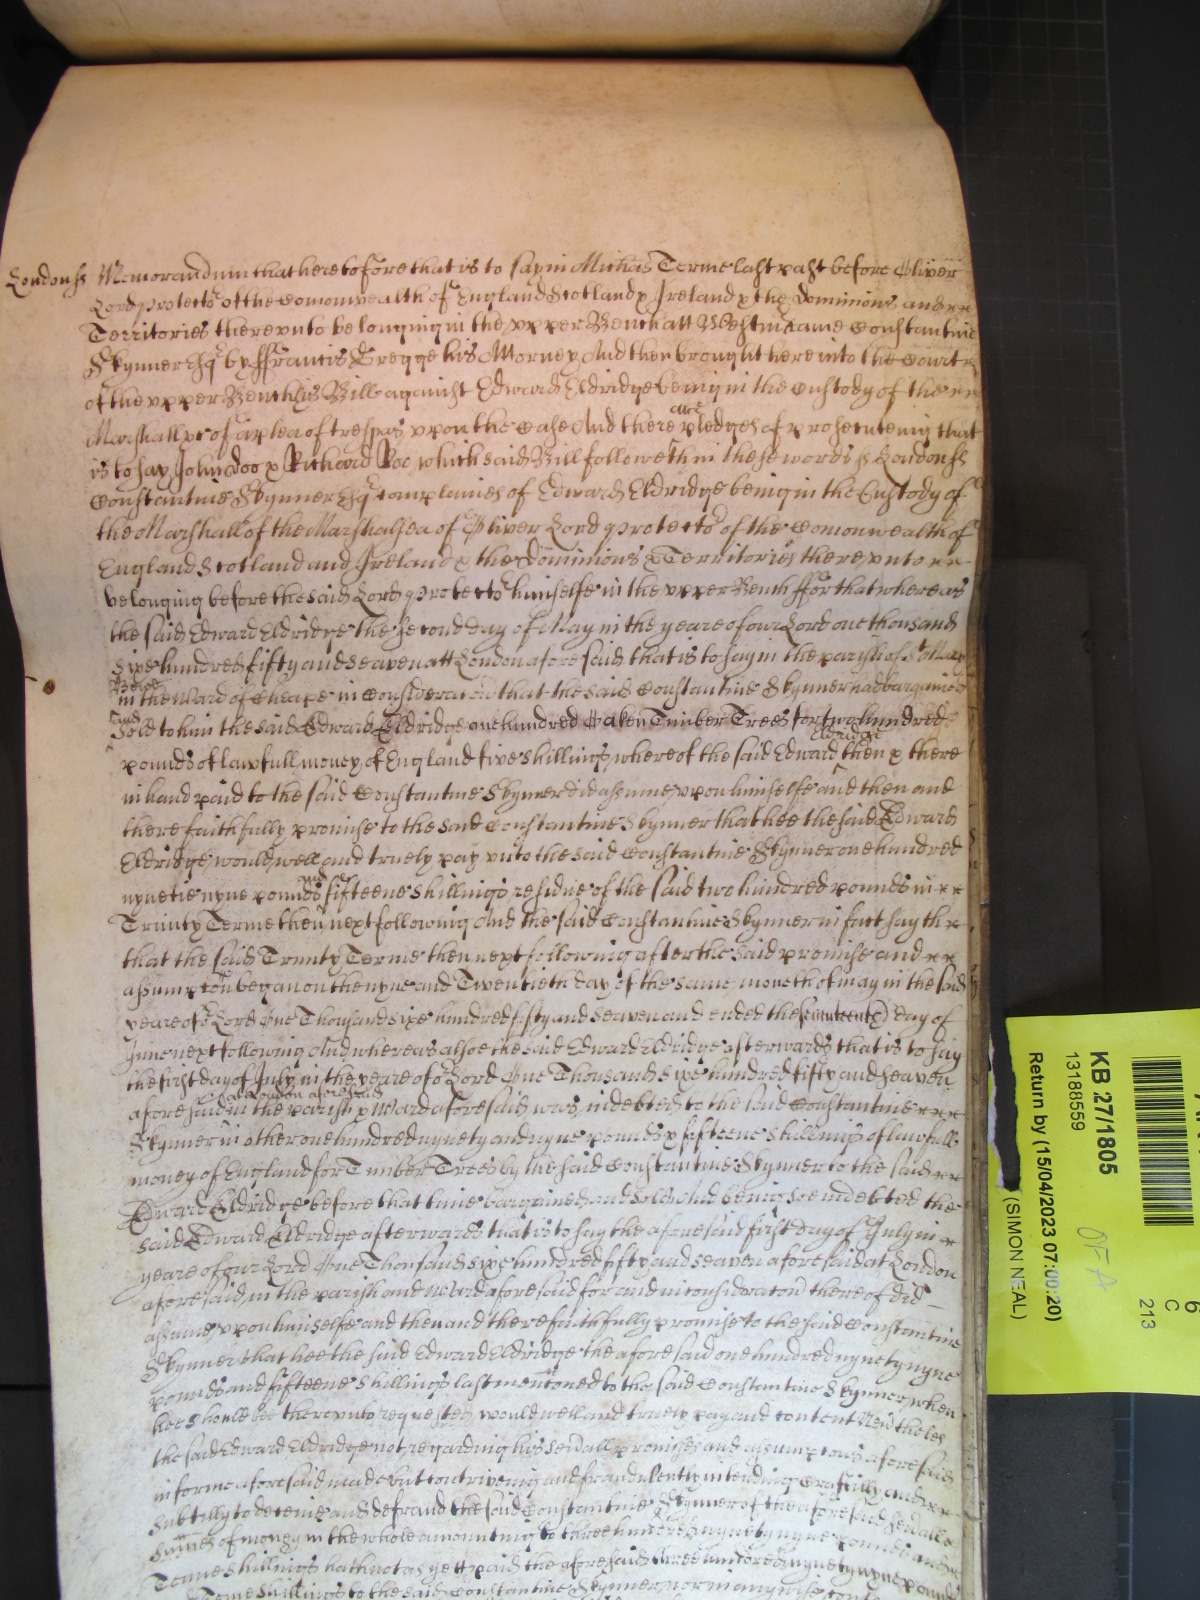 London ss Memorandum that heretofore that is to say in Michas Terme last past before Oliver
Lord Protector of the Comonwealth of England Scotland & Ireland & the Dominions and
Territories thereunto belonging in the upper Bench att Westm came Constantine
Skynner Esq by Ffrancis Gregge his Attorney And then brought here into the Court
of the upper Bench his Bill against Edward Eldridge being in the Custody of the
Marshall &c of a plea of trespas upon the Case And there are pledges of prosecuteing that
is to say John Doo & Richard Roe which said Bill followeth in these words ss London ss
Constantine Skynner Esq complaines of Edward Eldridge being in the Custody of
the Marshall of the Marshalsea of Oliver Lord Protector of the Comonwealth of
England Scotland and Ireland & the Dominions & Territories thereunto
belonging before the said Lord Protector himselfe in the upper Bench Ffor that whereas
the said Edward Eldridge the second day of May in the yeare of our Lord one thousand
sixe hundred fifty and seaven att London aforesaid that is to say in the parish of St Mary
Bowe in the Ward of Cheape in Consideracon that the said Constantine Skynner had bargained
and sold to him the said Edward Eldridge one hundred Oaken Timber Trees for two hundred
pounds of lawfull money of England five shillings whereof the said Edward Eldridge then & there
in hand paid to the said Constantine Skynner did assume upon himselfe and then and
there faithfully promise to the said Constantine Skynner that hee the said Edward
Eldridge would well and truely pay unto the said Constantine Skynner one hundred
nynetie nyne pounds and fifteene shillings residue of the said two hundred pounds in
Trinity Terme then next following And the said Constantine Skynner in fact sayth
that the said Trinity Terme then next following after the said promise and
assumpcon began on the nyne and Twentieth day of the same moneth of may in the said
yeare of or Lord One Thousand sixe hundred fifty and seaven and ended the seaventeenth day of
June next following And whereas alsoe the said Edward Eldridge afterwards that is to say
the first day of July in the yeare of or Lord One Thousand sixe hundred fifty and seaven
aforesaid at London aforesaid in the parish & Ward aforesaid was indebted to the said Constantine
Skynner in other one hundred nynety and nyne pounds & fifteene shillings of lawfull
money of England for Timber Trees by the said Constantine Skynner to the said
Edward Eldridge before that time bargained and sold And being soe indebted the
said Edward Eldridge afterwards that is to say the aforesaid first day of July in
yeare of our Lord One Thousand sixe hundred fifty and seaven aforesaid at London
aforesaid in the parish and Ward aforesaid for and in consideracon thereof did
assume upon himselfe and then and there faithfully promise to the said Constantine
Skynner that hee the said Edward Eldridge the aforesaid one hundred nynety nyne
pounds and fifteene shillings last mentioned to the said Constantine Skynner when
hee should bee thereunto requested would well and truely pay and content Nevtheles
the said Edward Eldridge not regarding his sevall promises and assumpcons aforesaid
in forme aforesaid made but contriveing and fraudulently intending Craftily and
subtilly to deceive and defraud the said Constantine Skynner of the aforesaid sevall
sumes of money in the whole amounting to three hundred nynety nyne pounds and
Tenne shillings hath not as yett paid the aforesaid three hundred nynety nyne pounds
Tenne shillings to the said Constantine Skynner nor in any wise
KB 27/1805
13188559
Return by (15/04/2023 07:00:20)
(SIMON NEAL)
6
C
213